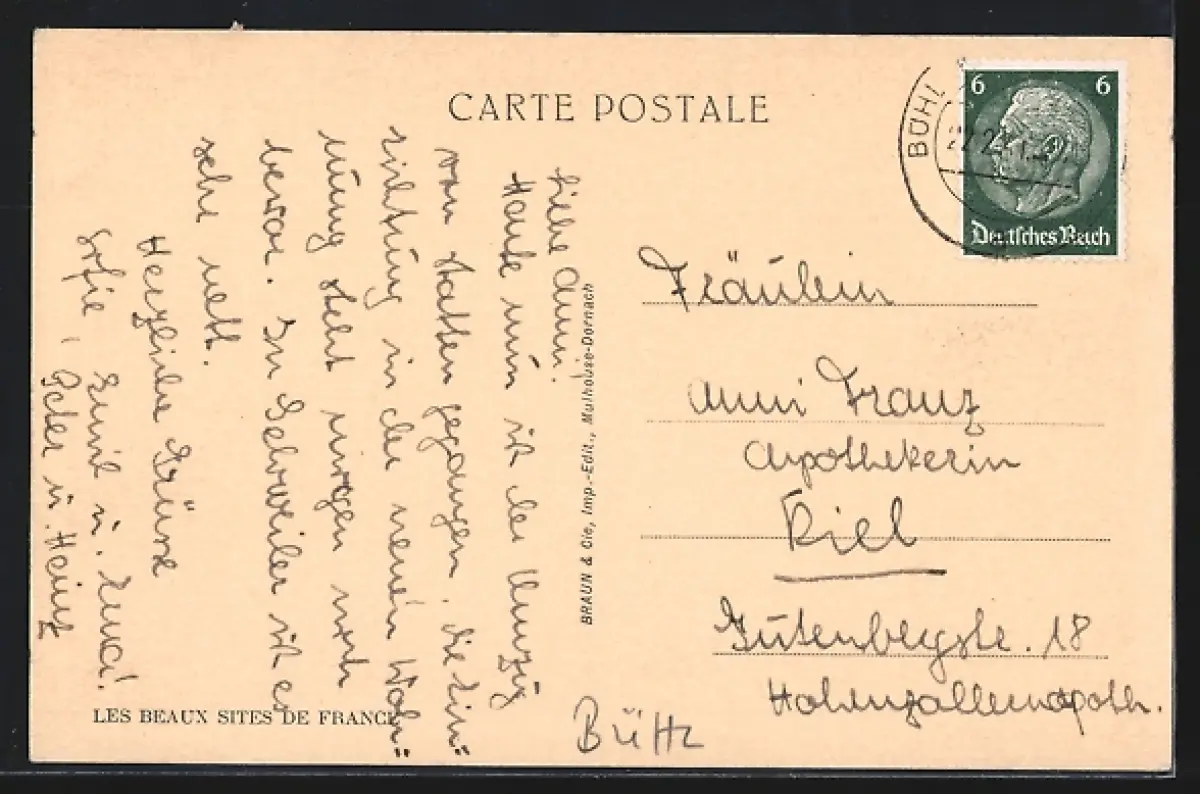 CARTE POSTALE
BÜHL
6 6
Deutsches Reich
Liebe Anni!
Heute nun ist der Umzug
von statten gegangen. Die Ein=
richtung in der neuen Woh=
nung steht morgen noch
bevor. In Gebweiler ist es
sehr nett.
Herzliche Grüsse
Emil u. Erna!
Peter u. Heinz
BRAUN & Cie, Imp.-Edit., Mulhouse-Dornach
Fräulein
Anni Franz
Apothekerin
Kiel
Gutenbergstr. 18
Hohenzollernapoth.
LES BEAUX SITES DE FRANCE